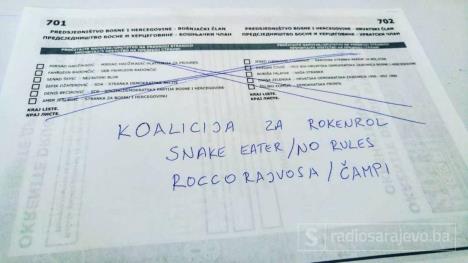 701
702
PREDSJEDNIŠTVO BOSNE I HERCEGOVINE - BOŠNJAČKI ČLAN
ПРЕДСЈЕДНИШТВО БОСНЕ И ХЕРЦЕГОВИНЕ - БОШЊАЧКИ ЧЛАН
PREDSJEDNIŠTVO BOSNE I HERCEGOVINE - HRVATSKI ČLAN
ПРЕДСЈЕДНИШТВО БОСНЕ И ХЕРЦЕГОВИНЕ - ХРВАТСКИ ЧЛАН
MIRSAD HADŽIKADIĆ
FAHRUDIN RADONČIĆ
SENAD ŠEPIĆ - NEZAVISNI BLOK
ŠEFIK DŽAFEROVIĆ - SDA - STRANKA DEMOKRATSKE AKCIJE
DENIS BEĆIROVIĆ - SDP
AMER JERLAGIĆ - STRANKA ZA BOSNU I HERCEGOVINU
KRAJ LISTE.
КРАЈ ЛИСТЕ.
KRAJ LISTE.
КРАЈ ЛИСТЕ.
KOALICIJA ZA ROKENROL
SNAKE EATER/NO RULES
ROCCO RAJVOSA/ČAMPI
OKRENITE
radiosarajevo.ba